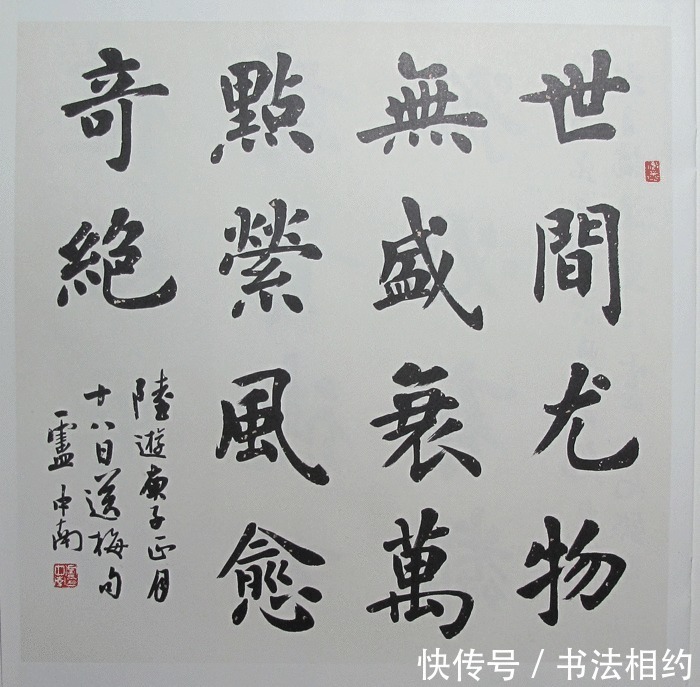 世間尤物
無盛衰萬
點縈風愈
奇絕
陸遊庚子正月
十八日送梅句
盧中南
快传号 / 书法相约